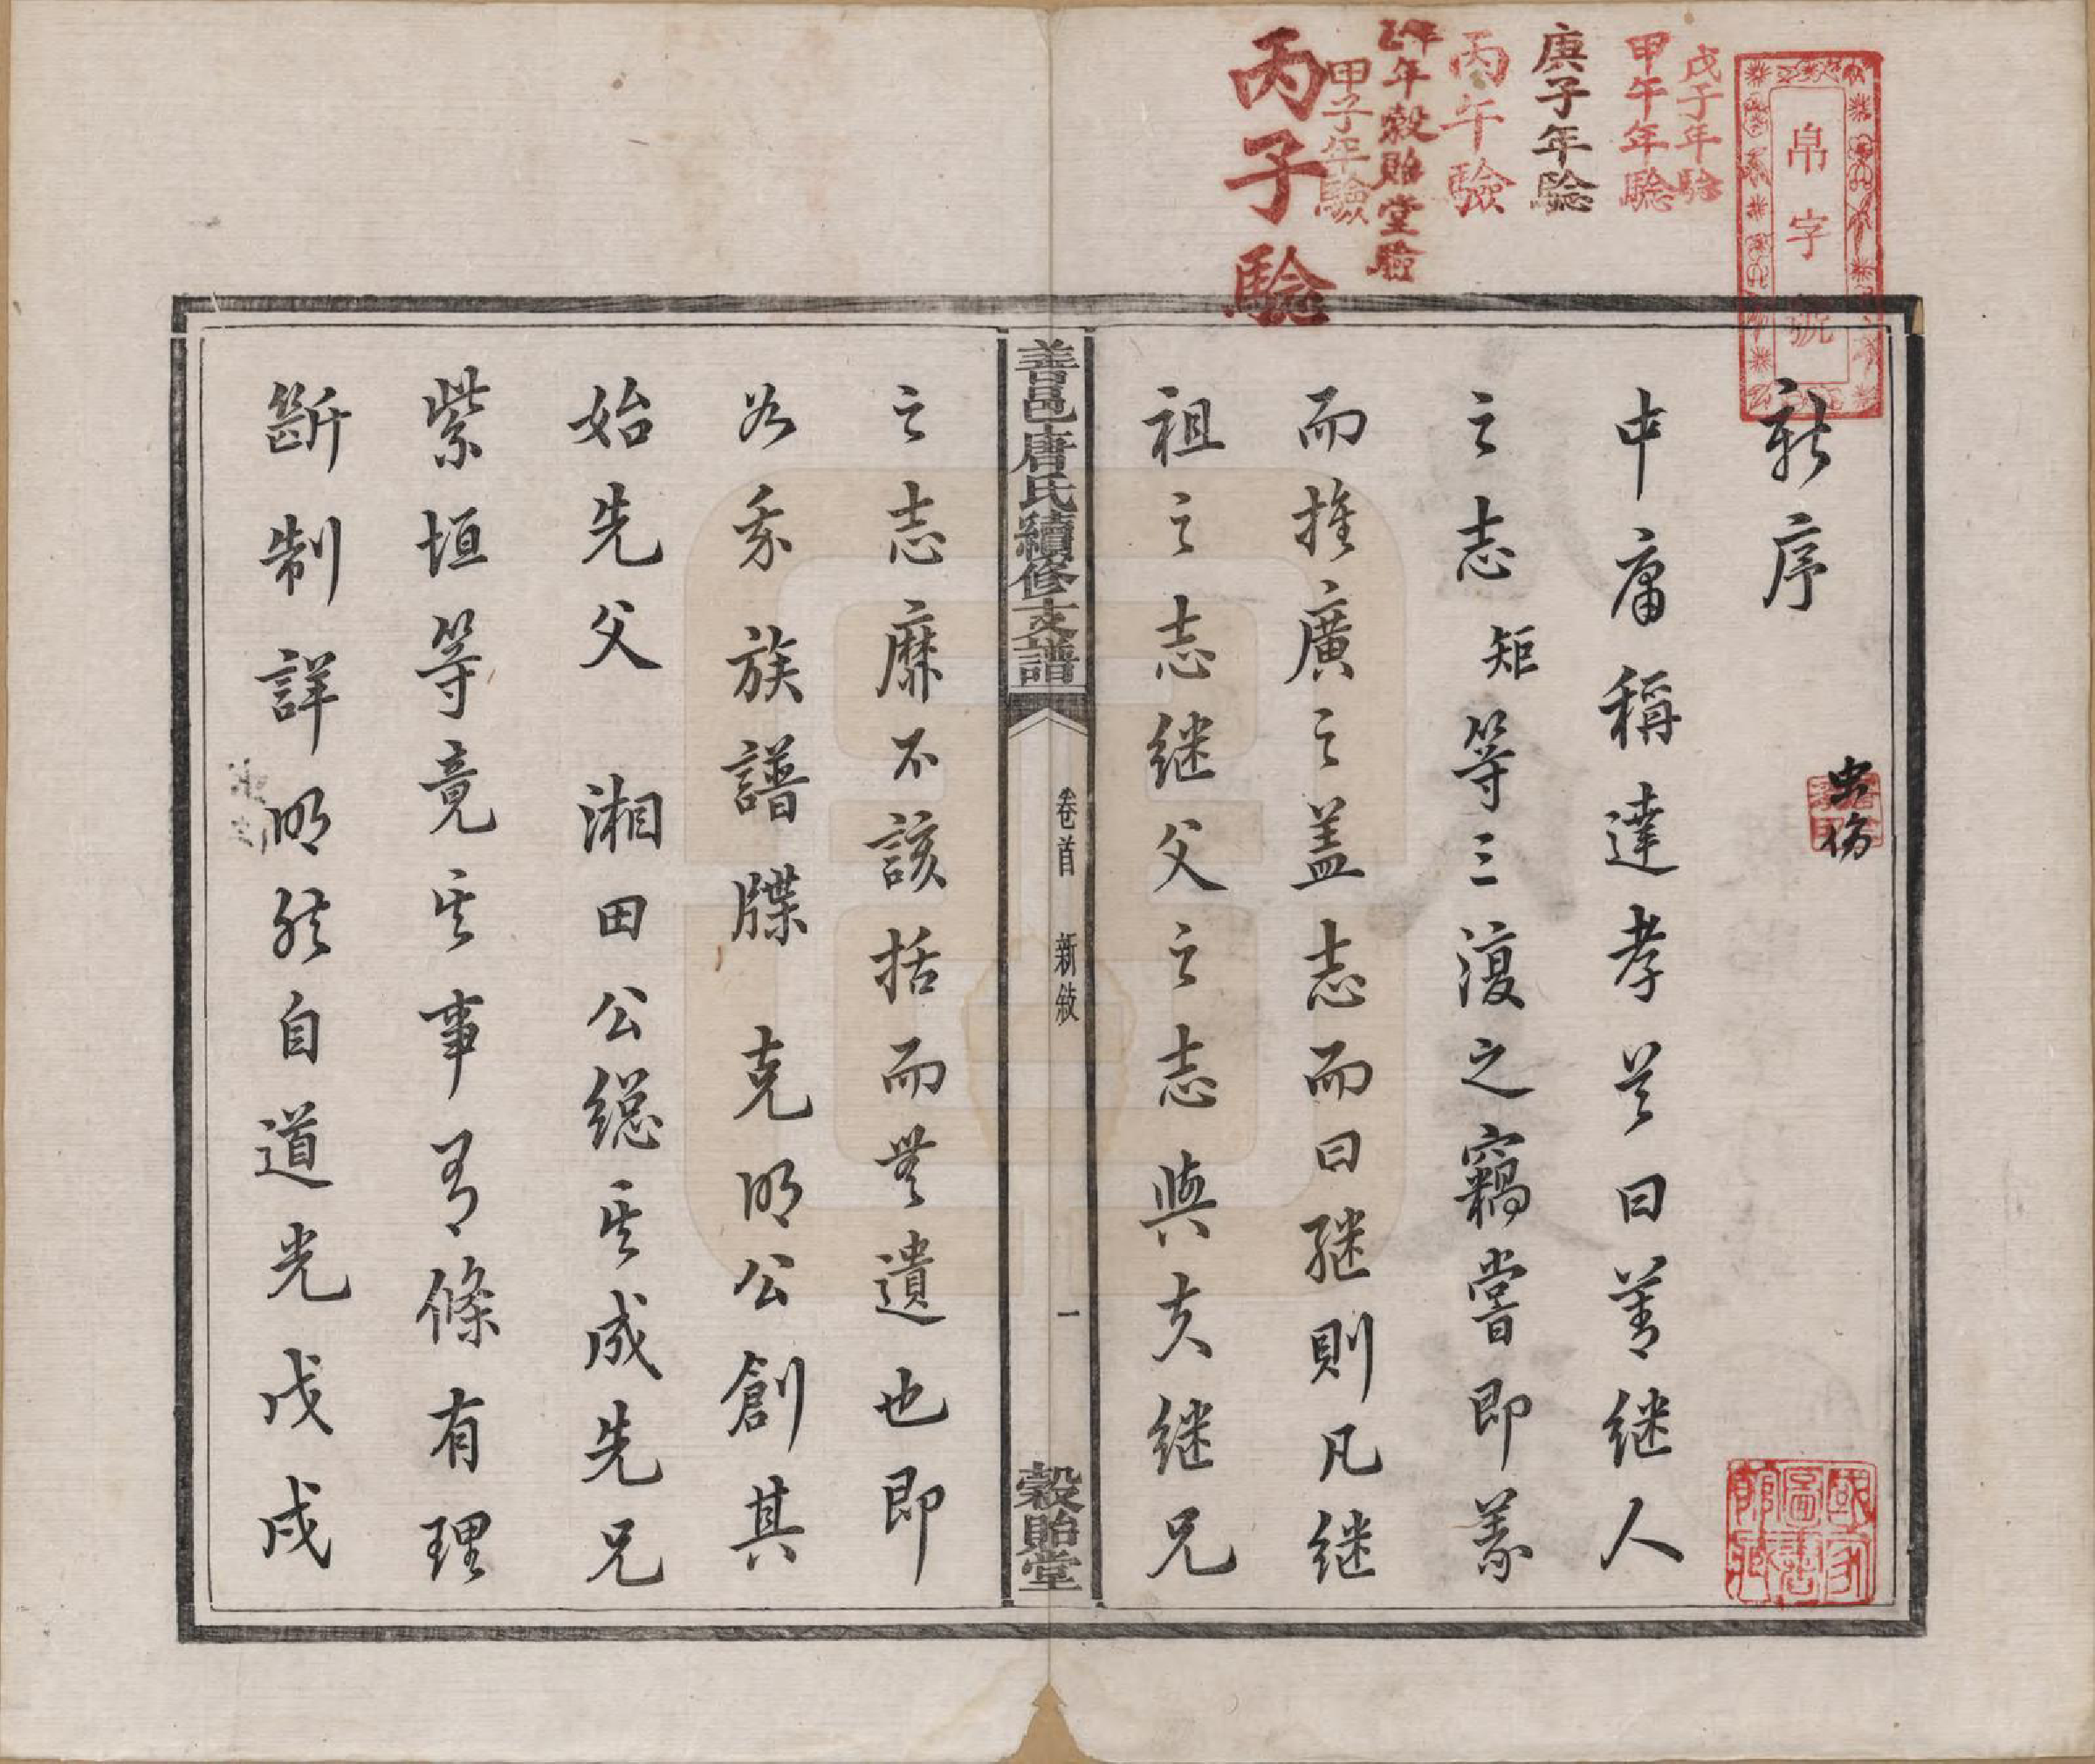 新序
中庸稱達孝者曰善继人
之志矩等三復之竊嘗即義
而推廣之盖志而曰継則凡继
祖之志继父之志與夫继兄
之志靡不該括而無遺也即
如我族譜牒 克明公創其
始先父 湘田公總其成先兄
紫垣等竟其事有條有理
斷制詳明然自道光戊戌
善邑唐氏續修支譜
卷首 新敘
一
穀貽堂
帛字號
戊子年驗
甲午年驗
庚子年驗
丙午驗
年穀貽堂驗
甲子年驗
丙子驗
虫傷
國家圖書館藏